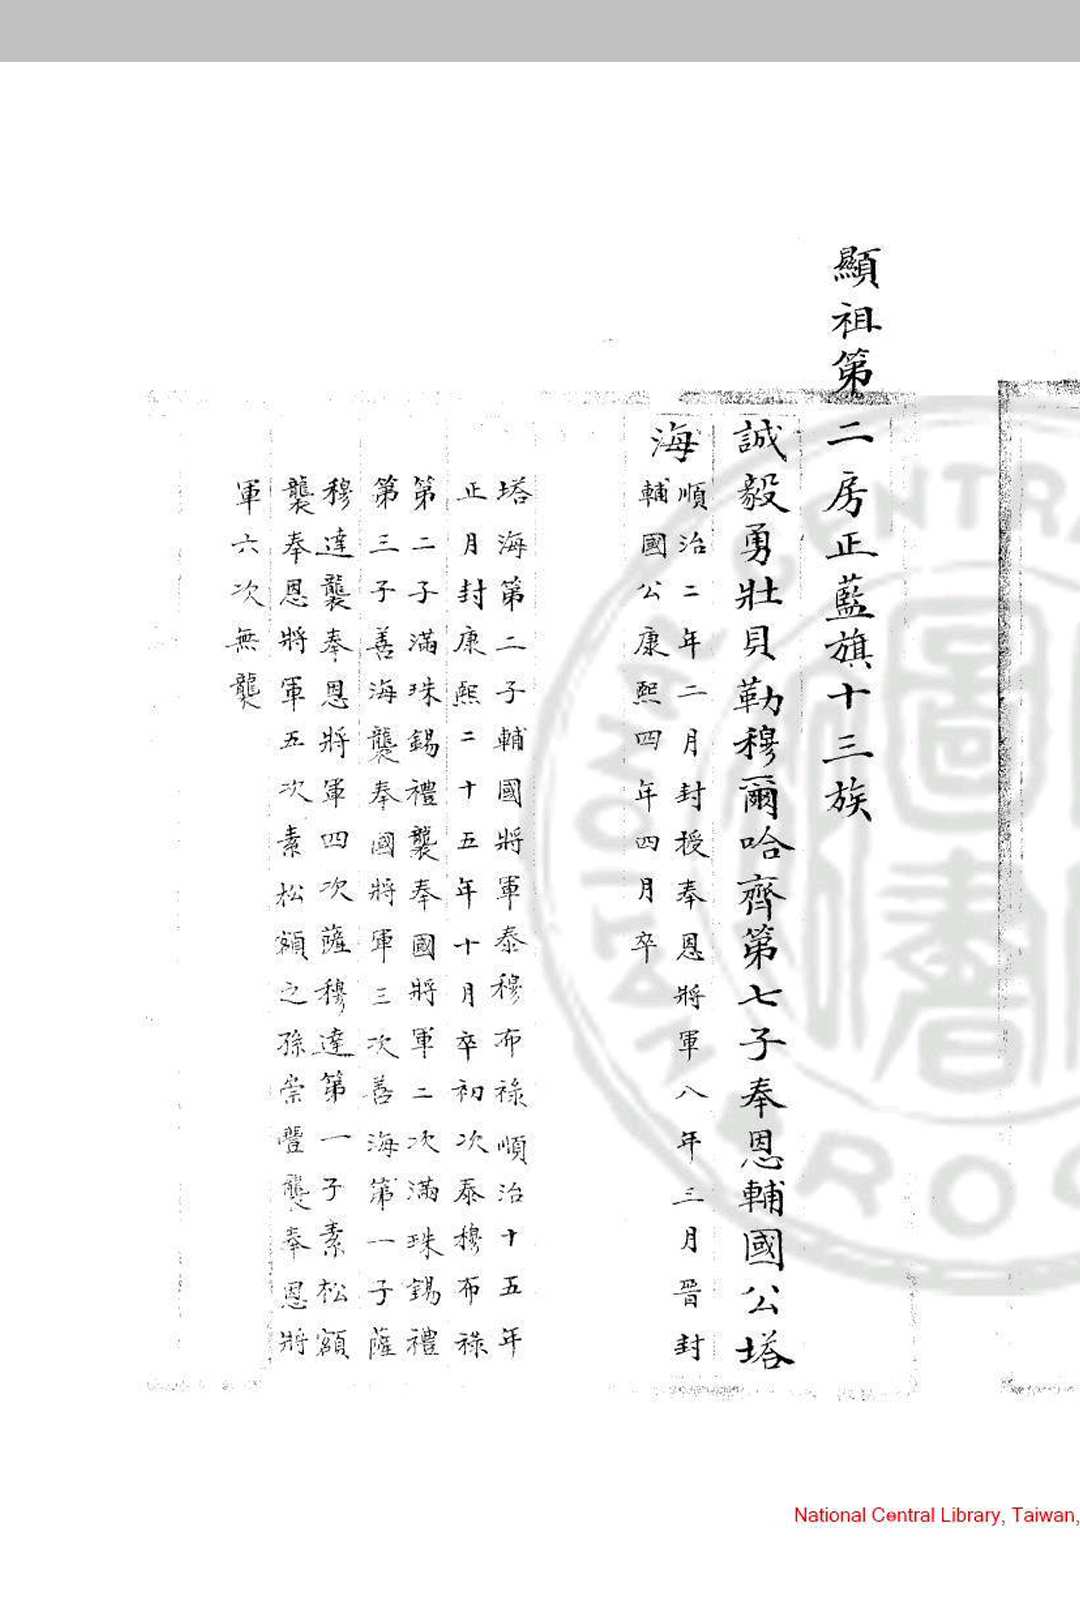 顯祖第二房正藍旗十三族
誠毅勇壯貝勒穆爾哈齊第七子奉恩輔國公塔
海
順治二年二月封授奉恩將軍八年三月晉封
輔國公康熙四年四月卒
塔海第二子輔國將軍泰穆布祿順治十五年
正月封康熙二十五年十月卒初次泰穆布祿
第二子滿珠錫禮襲奉國將軍二次滿珠錫禮
第三子善海襲奉國將軍三次善海第一子薩
穆達襲奉恩將軍四次薩穆達第一子素松額
襲奉恩將軍五次素松額之孫崇豐襲奉恩將
軍六次無襲
National Central Library, Taiwan,